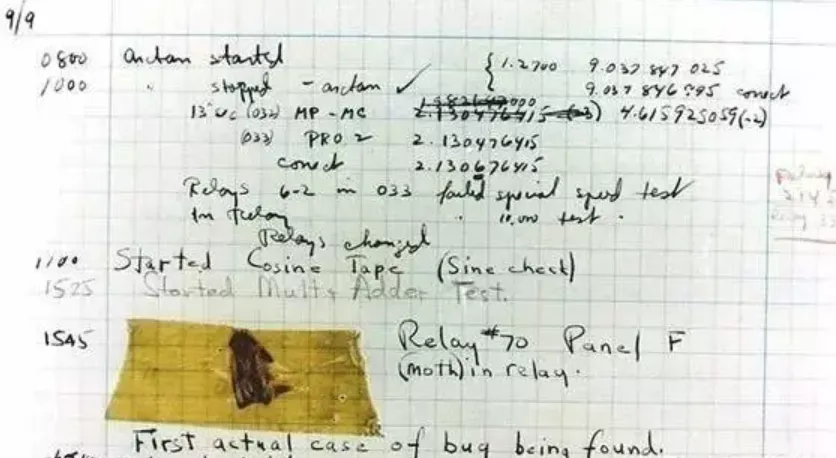 9/9
0800 arctan started { 1.2700 9.037 847 025
1000 " stopped - arctan ✓ 9.037 846 995 correct
13"UC (032) MP-MC 2.130476415 (-3) 4.615925059(-2)
(033) PRO 2 2.130476415
correct 2.130676415
Relays 6-2 in 033 failed special speed test
In Relay " 10,000 test.
Relays changed
1100 Started Cosine Tape (Sine check)
1525 Started Mult+Adder Test.
1545 Relay #70 Panel F
(moth) in relay.
First actual case of bug being found.